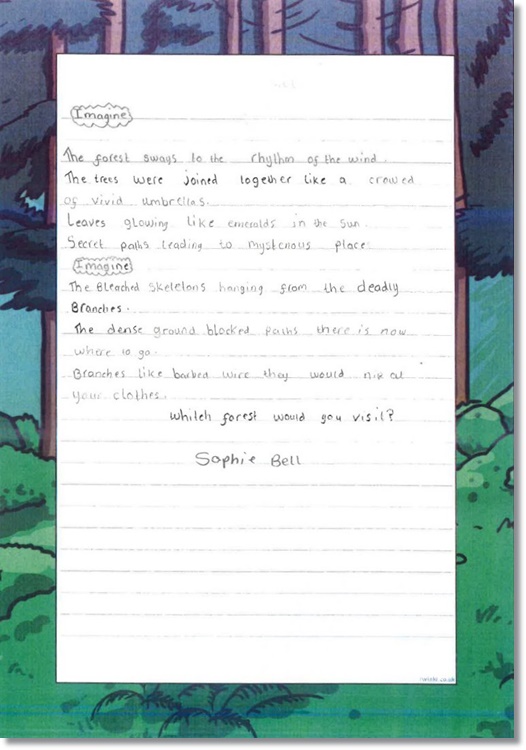 Imagine
The forest sways to the rhythm of the wind.
The trees were joined together like a crowed
of vivid umbrellas.
Leaves glowing like emeralds in the sun.
Secret paths leading to mysterious place.
Imagine
The Bleached skeletons hanging from the deadly
Branches.
The dense ground blocked paths there is now
where to go.
Branches like barbed wire they would nip at
your clothes.
Whitch forest would you visit?
Sophie Bell